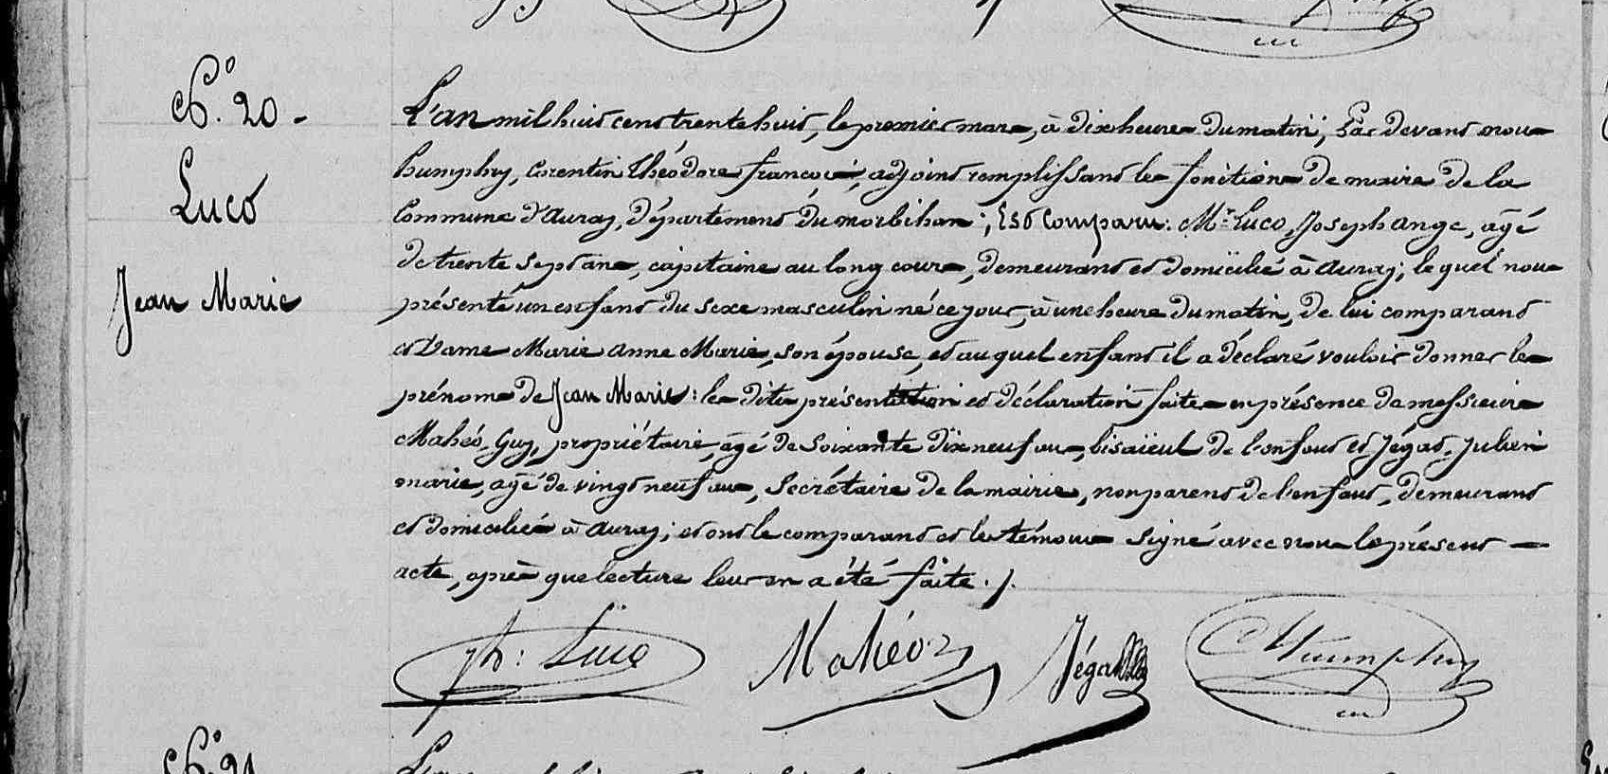 N.° 20.
Luco
Jean Marie
L'an mil huit cent trente huit, le premier mars, à dix heures du matin; Par devant nous
humphry, Corentin Théodore françois, adjoint remplissant les fonctions de maire de la
Commune d'Auray, département du morbihan; Est Comparu: Mr. Luco, Joseph ange, âgé
de trente sept ans, capitaine au long cours, demeurant et domicilié à auray; lequel nous
présenté un enfant du sexe masculin né ce jour, à une heure du matin, de lui comparant
et Dame Marie anne Marie, son épouse, et auquel enfant il a déclaré vouloir donner les
prénoms de Jean Marie: les dites présentation et déclaration faites en présence de messieurs
Mahéo, Guy, propriétaire, âgé de soixante dix neuf ans, bisaïeul de l'enfant et Jégat, Julien
marie, âgé de vingt neuf ans, Secrétaire de la mairie, non parent de l'enfant, demeurant
et domiciliés à auray; et ont le comparant et les témoins signé avec nous le présent
acte, après que lecture leur en a été faite ./.
Jh: Luco Mahéo Jégat Humphry
N.° 21
L'an